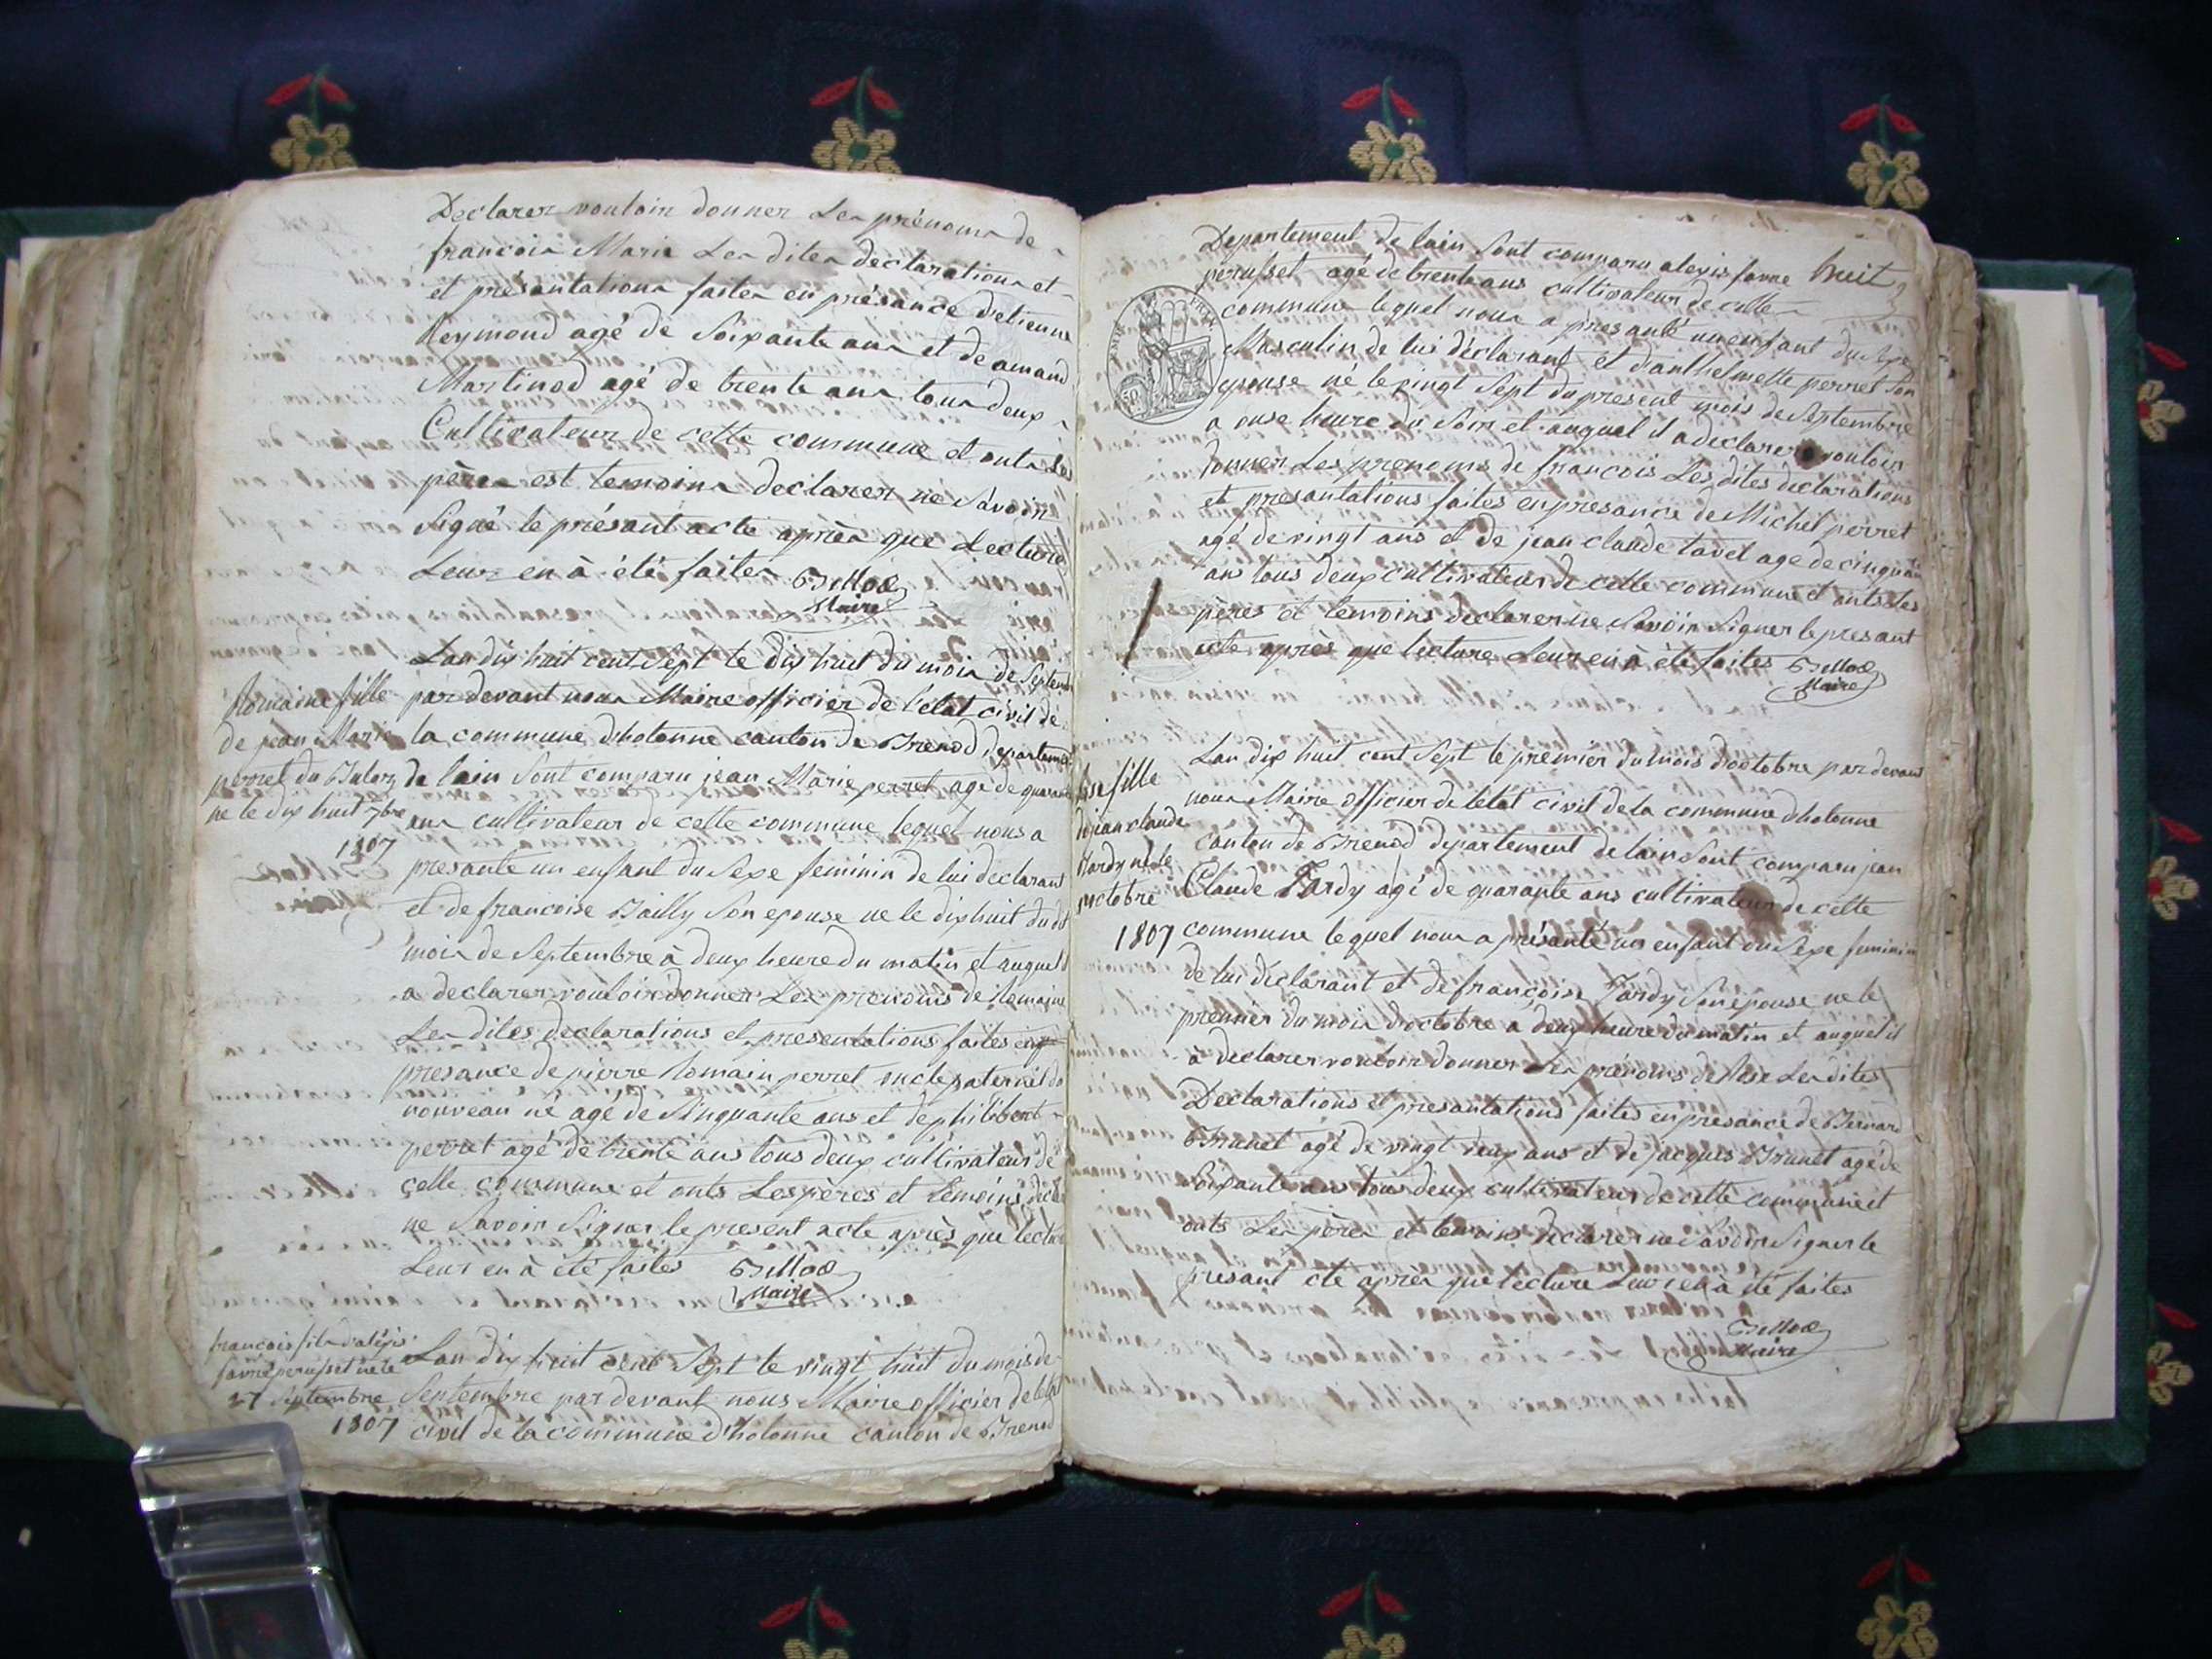 Declarer vouloir donner Les prénoms de
françois Marie Les dites declarations et
et présantations faites en présance d'etienne
Reymond agé de Soixante ans et de amand
Martinod agé de trente ans tous deux
Cultivateur de cette commune et onts Les
pères est temoins declarer ne Savoir
Signé le présant acte après que Lecture
Leur en à été faites
Maire
Lan dix huit cent Sept le dix huit du mois de Septembre
Romaine fille
de jean Marie
perret du
né le dix huit 7bre
1807
par devant nous Maire officier de l'état civil de
la commune d'hotonne canton de Brenod departement
de lain Sont comparu jean Marie perret agé de quarante
ans cultivateur de cette commune lequel nous a
presanté un enfant du Sexe feminin de lui declarant
et de francoise Bailly Son epouse né le dix huit du dt
mois de Septembre à deux heure du matin et auquel il
a declarer vouloir donner Les prenoms de Romaine
Les dites declarations et presentations faites en
presance de pierre Romain perret oncle paternel du
nouveau né agé de Sinquante ans et de philibert
perret agé de trente ans tous deux cultivateur de
cette commune et onts Les pères et temoins
ne Savoir Signer le present acte après que lecture
Leur en à été faites
Maire
françois fils d'alexis
favre perusset né le
27 Septembre
1807
Lan dix huit cent Sept le vingt huit du mois de
Septembre par devant nous Maire officier de létat
civil de la commune d'hotonne canton de Brenod
huit
Departement de lain Sont comparu alexis favre
perusset agé de trente ans cultivateur de cette
commune lequel nous a presanté un enfant du Sexe
Masculin de lui déclarant et d'anthelmette perret Son
epouse né le vingt Sept du present mois de Septembre
a onse heure du Soir et auquel il a declarer vouloir
donner Les prenoms de françois Les dites declarations
et presantations faites en presance de Michel perret
agé de vingt ans et de jean claude tavel agé de cinquante
ans tous deux cultivateur de cette commune et onts Les
pères et temoins declarer ne Savoir Signer le presant
acte après que lecture Leur en à été faites
Maire
fille
de jean claude
tardy né le
octobre
1807
Lan dix huit cent Sept le premier du mois doctobre par devant
nous Maire officier de létat civil de la commune d'hotonne
canton de Brenod departement de lain Sont comparu jean
Claude Tardy agé de quarante ans cultivateur de cette
commune lequel nous a présanté un enfant du Sexe feminin
de lui déclarant et de françoise Tardy Son épouse né le
premier du mois doctobre a deux heure du matin et auquel il
à declarer vouloir donner Les prénoms de Rose Les dites
Declarations et presantations faites en presance de Bernard
Brunet agé de vingt deux ans et de jacques Brunet agé de
Soixante ans tous deux cultivateur de cette commune et
onts Les pères et temoins declarer ne Savoir Signer le
presant cte après que lecture Leur en à été faites
Maire